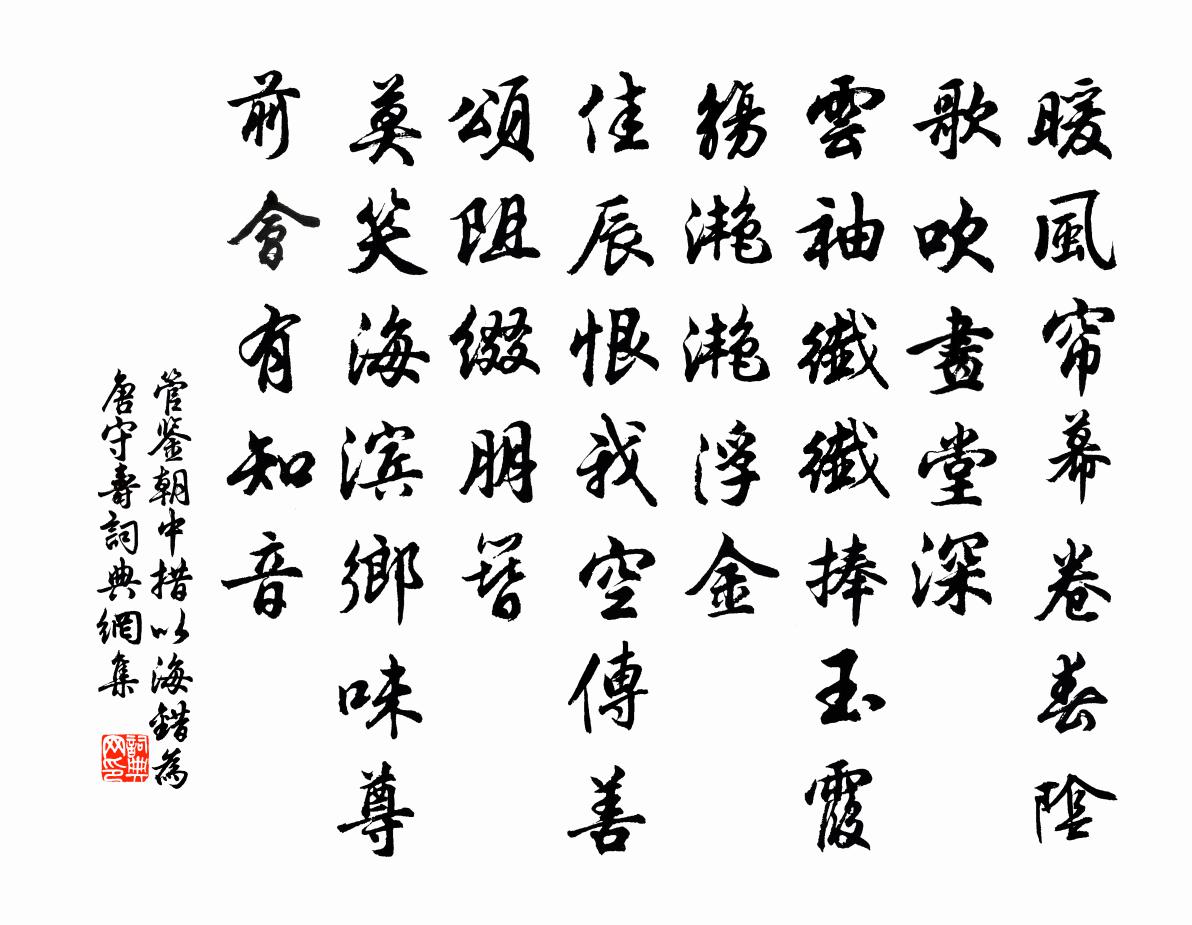 暖風帘幕卷春陰
歌吹畫堂深
雲袖纖纖捧玉霞
觴灔灔浮金
佳辰恨我空傳善
頌阻綴朋簪
莫笑海滨鄉味尊
前會有知音
管鉴朝中措以海錯為
唐守壽詞典網集
詞典网印